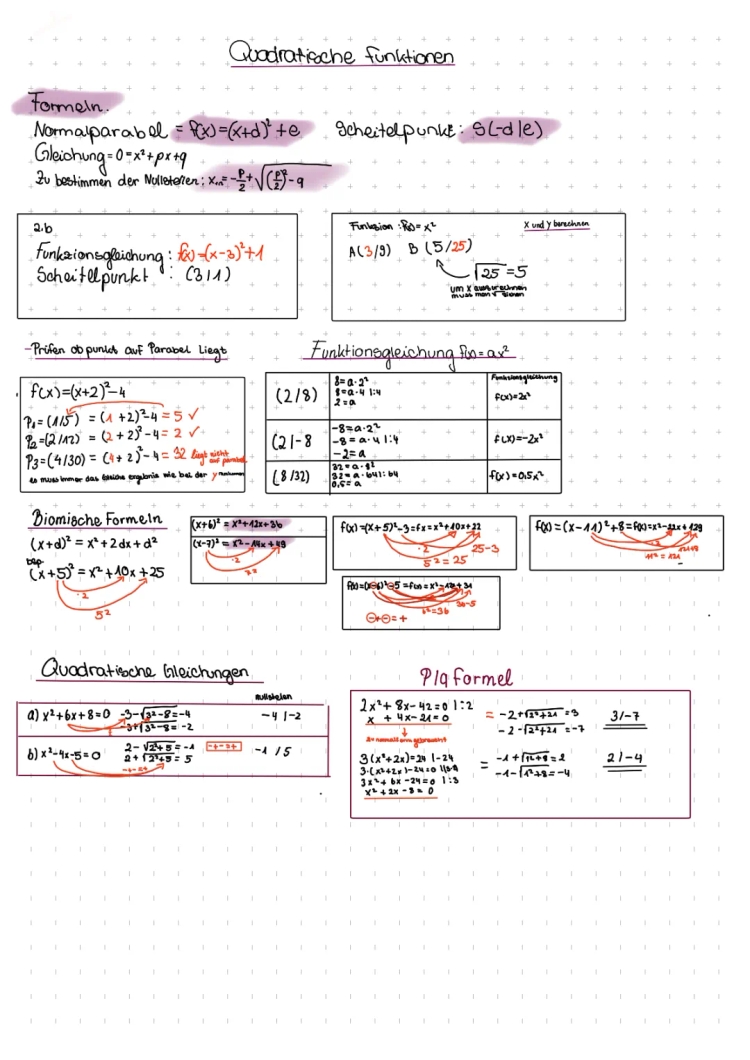 Quadratische Funktionen
Formeln:
Normalparabel = f(x)=(x+d)²+e Scheitelpunkt: S(-d/e)
Gleichung = 0 = x²+px+q
Zu bestimmen der Nullstellen: x₁/₂= -p/2 ± √(p/2)² - q
2.b
Funkzionsgleichung: f(x)=(x-3)²+1
Scheitelpunkt : (3/1)
Funksion: f(x) = x² x und y berechnen
A(3/9) B (5/25)
√25 = 5
um x auszurechnen
muss man √ ziehen
-Prüfen ob punkt auf Parabel Liegt
f(x)=(x+2)²-4
P1=(1/5) = (1+2)²-4 = 5 ✓
P2=(2/12) = (2+2)²-4 = 2 ✓
P3=(4/30) = (4+2)²-4 = 32 liegt nicht auf parabel
es muss immer das gleiche ergebnis wie bei der y
Funktionsgleichung f(x) = ax²
Funktionsgleichung
(2/8) 8=a·2²
8=a·4 |:4
2=a
f(x)=2x²
(2/-8 -8=a·2²
-8=a·4 |:4
-2=a
f(x)=-2x²
(8/32) 32=a·8²
32=a·64 |:64
0,5=a
f(x)=0,5x²
Biomische Formeln
(x+d)² = x²+2dx+d²
bsp.
(x+5)² = x²+10x+25
·2
5²
(x+6)² = x²+12x+36
(x-7)² = x²-14x+49
·2
7²
f(x)=(x+5)²-3=fx=x²+10x+22
·2 25-3
5²=25
f(x)=(x-11)²+8=f(x)=x²-22x+129
·2 121+8
11²=121
f(x)=(x-6)²-5=f(x)=x²-12x+31
6²=36 36-5
⊖+⊖=+
Quadratische Gleichungen
nullstelen
a) x²+6x+8=0 -3-√3²-8=-4
-3+√3²-8=-2
-4/-2
b) x²-4x-5=0 2-√2²+5=-1
2+√2²+5=5
-+-=+
-1/5
-+-=+
P/q Formel
2x²+8x-42=0 |:2
x +4x-21=0
= -2+√2²+21=3
-2-√2²+21=-7
3/-7
3(x²+2x)=24 |-24
3·(x²+2x)-24=0
3x²+6x-24=0 |:3
x²+2x-8=0
= -1+√1²+8=2
-1-√1²+8=-4
2/-4